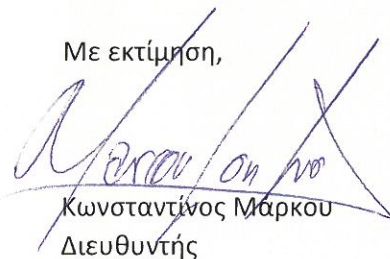 Με εκτίμηση,
Κωνσταντίνος Μάρκου
Διευθυντής